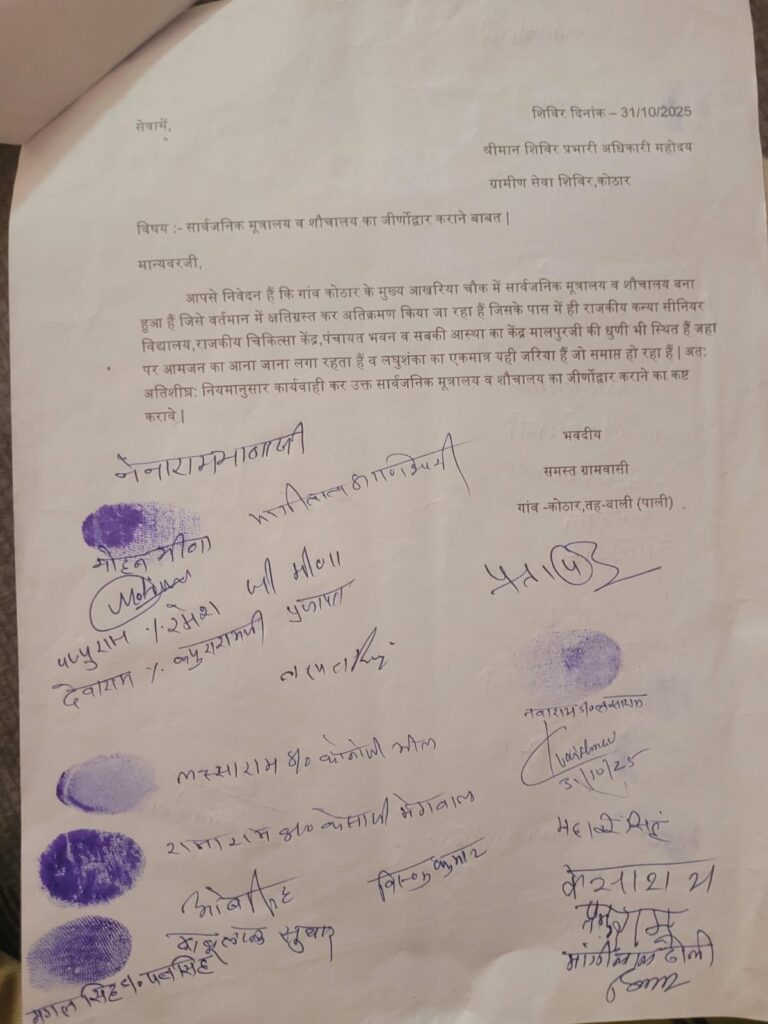 शिविर दिनांक – 31/10/2025
सेवामें,
श्रीमान शिविर प्रभारी अधिकारी महोदय
ग्रामीण सेवा शिविर,कोठार
विषय :- सार्वजनिक मूत्रालय व शौचालय का जीर्णोद्वार कराने बाबत |
मान्यबरजी,
आपसे निवेदन हैं कि गांव कोठार के मुख्य आखरिया चौक में सार्वजनिक मूत्रालय व शौचालय बना
हुआ हैं जिसे वर्तमान में क्षतिग्रस्त कर अतिक्रमण किया जा रहा हैं जिसके पास में ही राजकीय कन्या सीनियर
विद्यालय,राजकीय चिकित्सा केंद्र,पंचायत भवन व सबकी आस्था का केंद्र मालपुरजी की धुणी भी स्थित हैं जहा
पर आमजन का आना जाना लगा रहता हैं व लघुशंका का एकमात्र यही जरिया हैं जो समाप्त हो रहा हैं | अत:
अतिशीघ्र: नियमानुसार कार्यवाही कर उक्त सार्वजनिक मूत्रालय व शौचालय का जीर्णोद्वार कराने का कष्ट
करावे |
भवदीय
समस्त ग्रामवासी
गांव -कोठार,तह-बाली (पाली)
मोहन मीणा
पप्पुराम % रमेश जी मीणा
देवाराम % कपुरारामजी प्रजापत
लस्साराम s/o
31/10/25
रामाराम s/o मेगवाल
मंगल सिंह
मांगीलाल ढोली